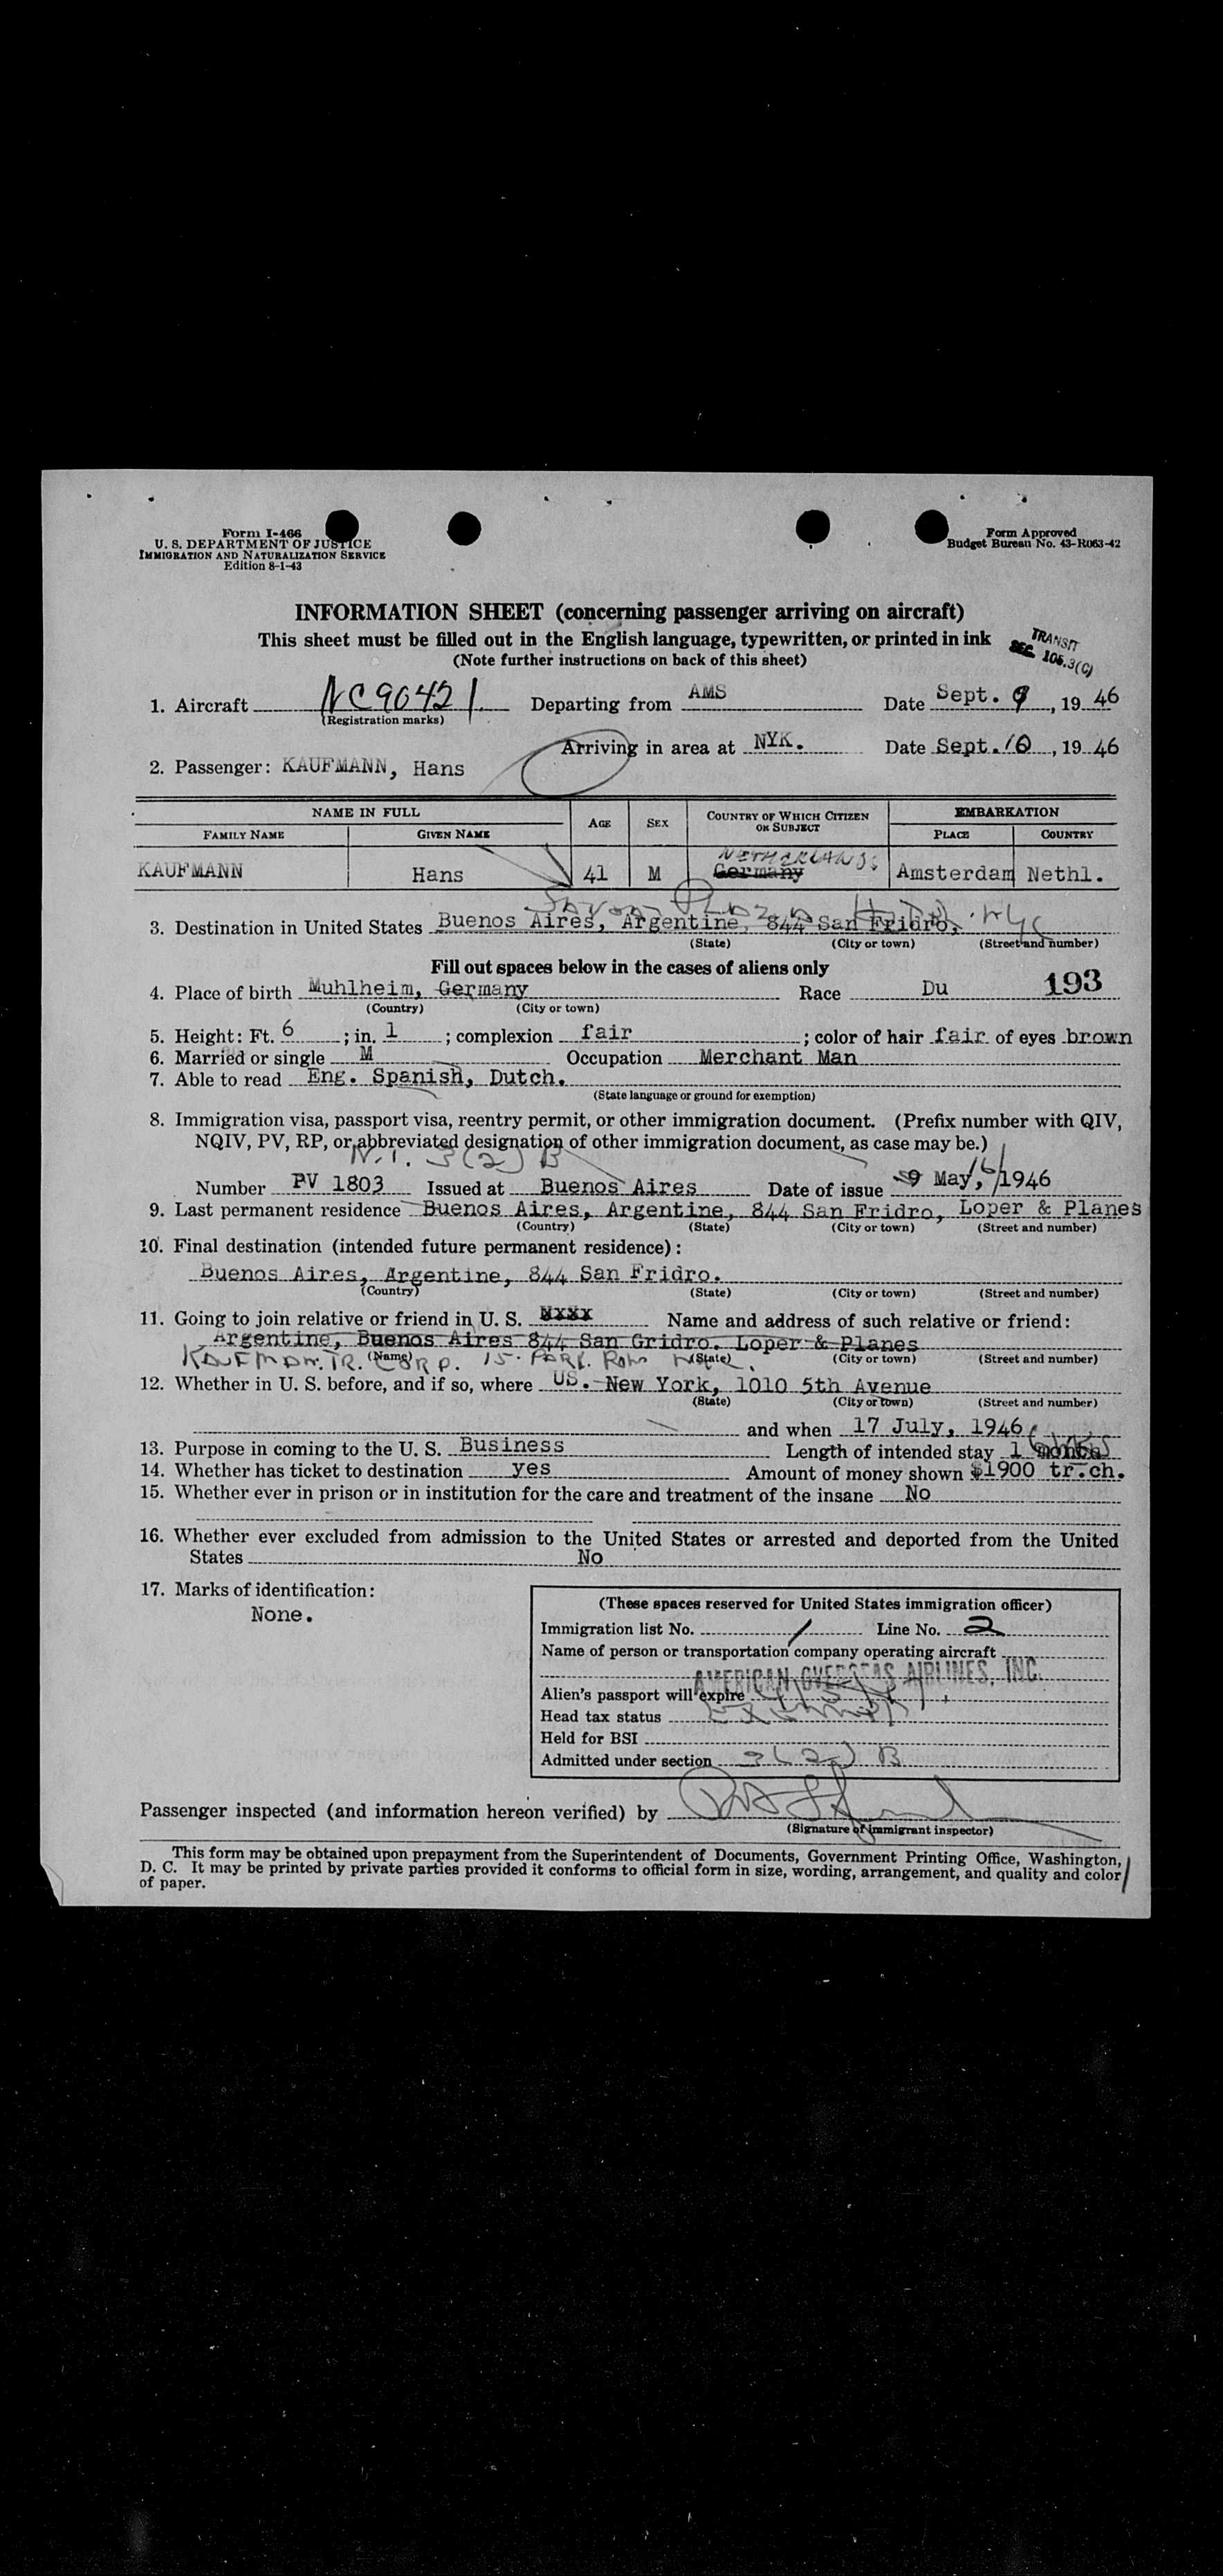 Form I-466
U. S. DEPARTMENT OF JUSTICE
IMMIGRATION AND NATURALIZATION SERVICE
Edition 8-1-43
Form Approved
Budget Bureau No. 43-R063-42
INFORMATION SHEET (concerning passenger arriving on aircraft)
This sheet must be filled out in the English language, typewritten, or printed in ink
(Note further instructions on back of this sheet)
TRANSIT
SEC. 105.3(C)
1. Aircraft NC90421 Departing from AMS Date Sept. 9, 1946
(Registration marks)
Arriving in area at NYK. Date Sept. 10, 1946
2. Passenger: KAUFMANN, Hans
NAME IN FULL AGE SEX COUNTRY OF WHICH CITIZEN OR SUBJECT EMBARKATION
FAMILY NAME GIVEN NAME PLACE COUNTRY
NETHERLANDS
KAUFMANN Hans 41 M Germany Amsterdam Nethl.
Savoy Plaza Hotel. NYC
3. Destination in United States Buenos Aires, Argentine, 844 San Fridro,
(State) (City or town) (Street and number)
Fill out spaces below in the cases of aliens only
4. Place of birth Muhlheim, Germany Race Du 193
(Country) (City or town)
5. Height: Ft. 6; in. 1; complexion fair; color of hair fair of eyes brown
6. Married or single M Occupation Merchant Man
7. Able to read Eng. Spanish, Dutch.
(State language or ground for exemption)
8. Immigration visa, passport visa, reentry permit, or other immigration document. (Prefix number with QIV,
NQIV, PV, RP, or abbreviated designation of other immigration document, as case may be.)
3(2) B
Number PV 1803 Issued at Buenos Aires Date of issue 9 May, 16/1946
9. Last permanent residence Buenos Aires, Argentine, 844 San Fridro, Loper & Planes
(Country) (State) (City or town) (Street and number)
10. Final destination (intended future permanent residence):
Buenos Aires, Argentine, 844 San Fridro.
(Country) (State) (City or town) (Street and number)
11. Going to join relative or friend in U. S. Name and address of such relative or friend:
Argentine, Buenos Aires 844 San Gridro. Loper & Planes
KAUFMAN. TR. CORP. 15 PARK Row
(Name) (State) (City or town) (Street and number)
12. Whether in U. S. before, and if so, where US. New York, 1010 5th Avenue
(State) (City or town) (Street and number)
and when 17 July, 1946
13. Purpose in coming to the U. S. Business Length of intended stay 1 month
14. Whether has ticket to destination yes Amount of money shown $1900 tr.ch.
15. Whether ever in prison or in institution for the care and treatment of the insane No
16. Whether ever excluded from admission to the United States or arrested and deported from the United
States No
17. Marks of identification:
None.
(These spaces reserved for United States immigration officer)
Immigration list No. 1 Line No. 2
Name of person or transportation company operating aircraft
AMERICAN OVERSEAS AIRLINES, INC.
Alien's passport will expire
Head tax status Exempt
Held for BSI
Admitted under section 3(2) B
Passenger inspected (and information hereon verified) by
(Signature of immigrant inspector)
This form may be obtained upon prepayment from the Superintendent of Documents, Government Printing Office, Washington,
D. C. It may be printed by private parties provided it conforms to official form in size, wording, arrangement, and quality and color
of paper.